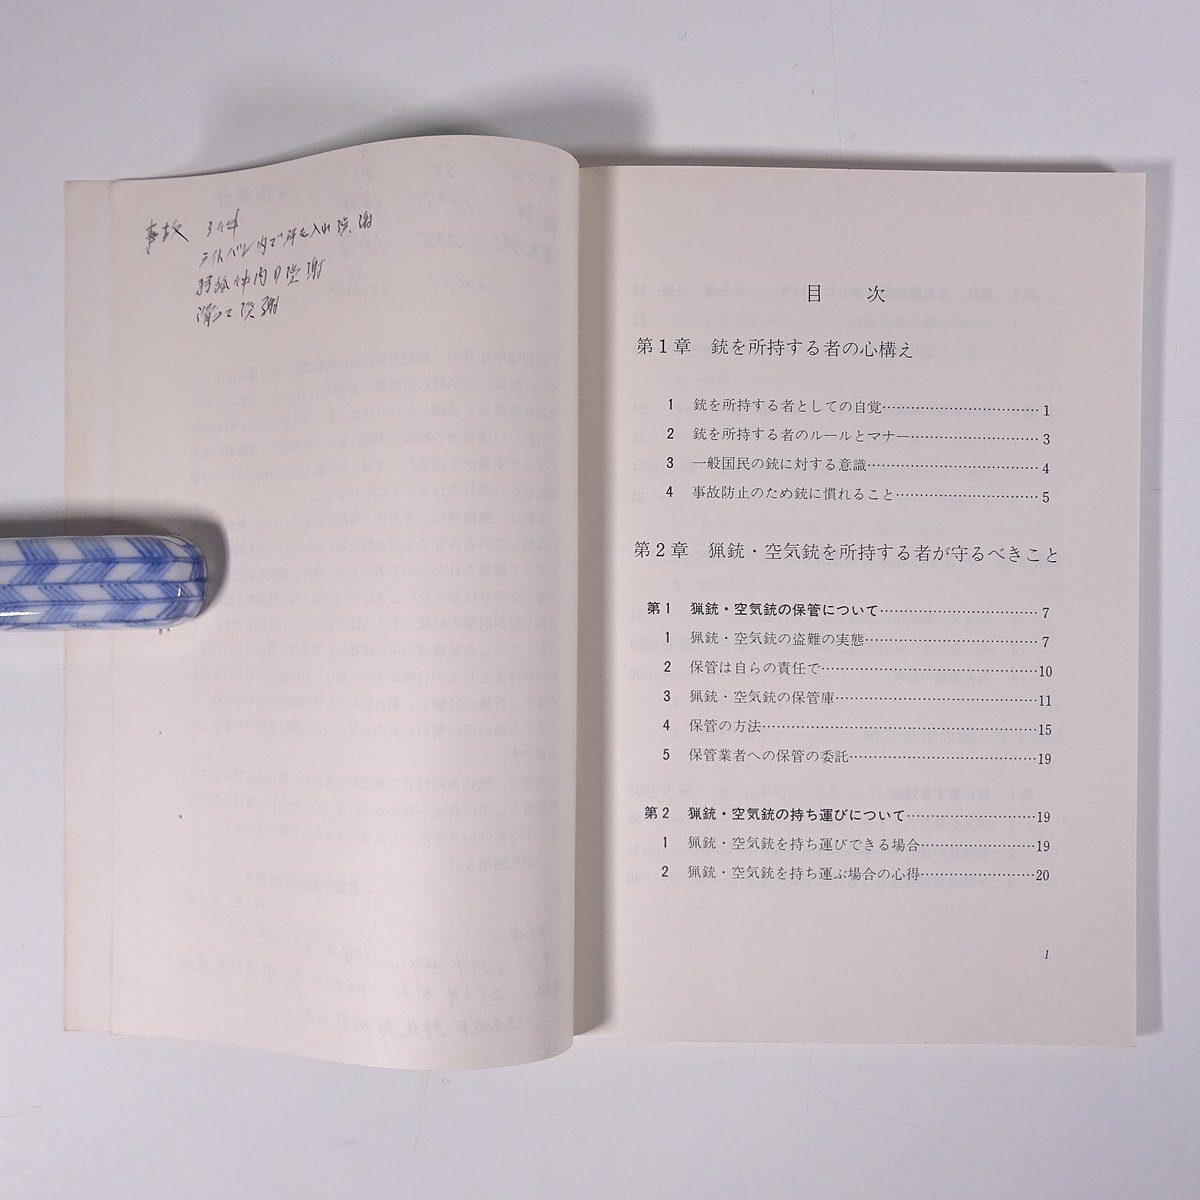 事故 3件
ライトバン内で弾を入れ
内の
目次
第1章 銃を所持する者の心構え
1 銃を所持する者としての自覚……………………………1
2 銃を所持する者のルールとマナー………………………3
3 一般国民の銃に対する意識………………………………4
4 事故防止のため銃に慣れること…………………………5
第2章 猟銃・空気銃を所持する者が守るべきこと
第1 猟銃・空気銃の保管について……………………………7
1 猟銃・空気銃の盗難の実態………………………………7
2 保管は自らの責任で………………………………………10
3 猟銃・空気銃の保管庫……………………………………11
4 保管の方法…………………………………………………15
5 保管業者への保管の委託…………………………………19
第2 猟銃・空気銃の持ち運びについて………………………19
1 猟銃・空気銃を持ち運びできる場合……………………19
2 猟銃・空気銃を持ち運ぶ場合の心得……………………20
1